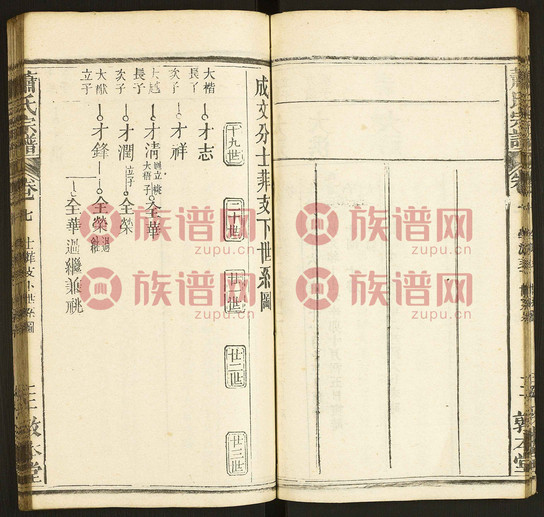 成文分士菲支下世系圖
十九世
二十世
廿一世
廿二世
廿三世
大楷
長丁
才志
次子
才祥
長子
才清
大梧子
全華
次子
才潤
立子
全榮
大猷
立子
才鋒
全榮
全華過繼兼祧
蕭氏宗譜
卷七
士菲支下世系圖
敦本堂
敦本堂
族谱网
zupu.cn
族谱网
zupu.cn
族谱网
zupu.cn
族谱网
zupu.cn